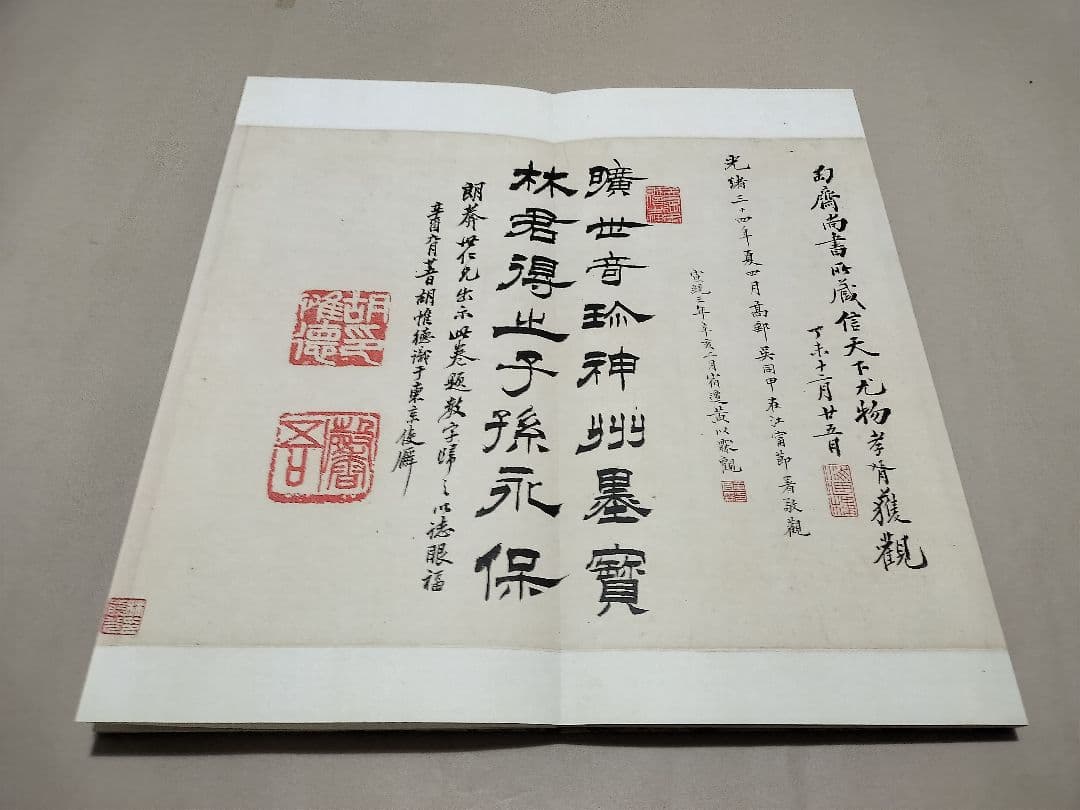 匋齋尚書所藏信天下尤物孝胥獲觀
丁未十二月廿五日
光緒三十四年夏四月高郵吳同甲在江甯節署敬觀
宣統三年辛亥二月宿遷黃以霖觀
曠世奇珍神州墨寶
林君得之子孫永保
朗菴世仁兄出示此卷題數字歸之以誌眼福
辛酉六月暮胡惟德識于東京使廨
胡印惟德
馨吾